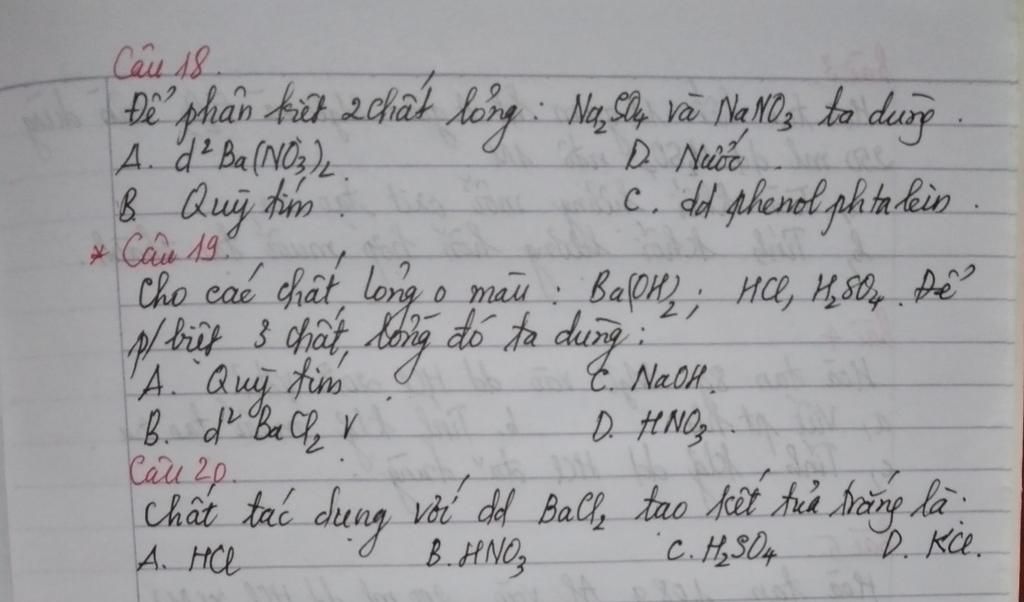 Câu 18.
Để phân biệt 2 chất lỏng : Na₂SO₄ và NaNO₃ ta dùng .
A. d² Ba(NO₃)₂ D. Nước .
B Quỳ tím . C. dd phenol phtalein .
* Câu 19.
Cho các chất lỏng o màu : Ba(OH)₂ ; HCl, H₂SO₄. Để
p/biệt 3 chất lỏng đó ta dùng :
A. Quỳ tím C. NaOH.
B. d² BaCl₂ v D. HNO₃ .
Câu 20.
Chất tác dụng với dd BaCl₂ tạo kết tủa trắng là :
A. HCl B. HNO₃ C. H₂SO₄ D. KCl.